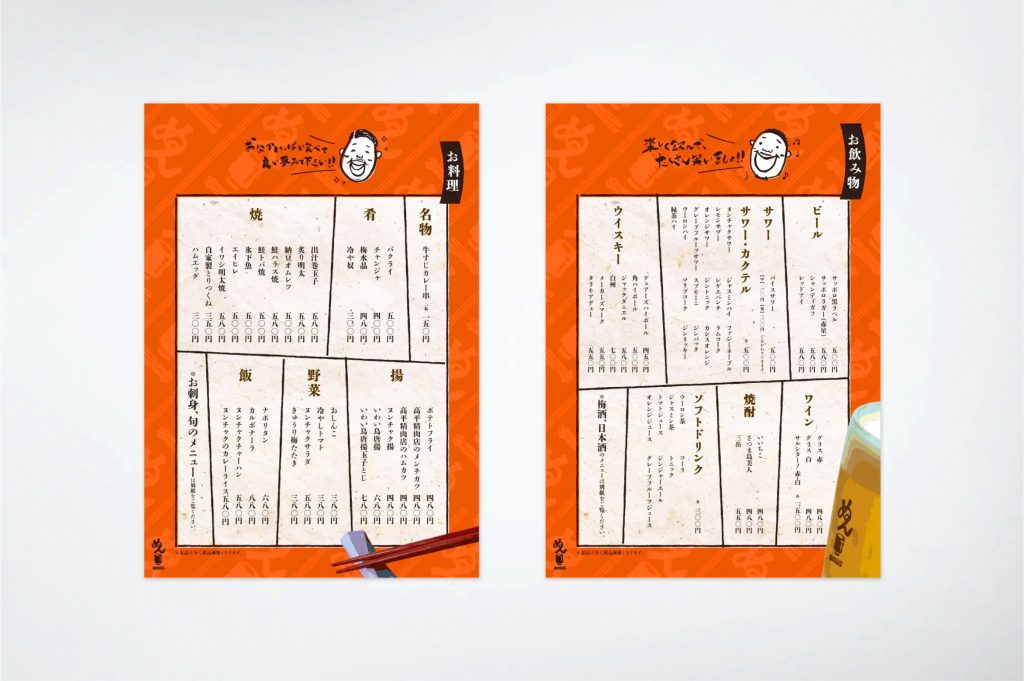 お料理
おなかいっぱい食べて
名物
牛すじカレー串（一本）一五〇円
肴
バクライ 五〇〇円
チャンジャ 四〇〇円
梅水晶 四八〇円
冷や奴 三〇〇円
焼
出汁巻玉子 五八〇円
炙り明太 五八〇円
納豆オムレツ 五八〇円
鮭ハラス焼 五五〇円
鮭トバ焼 五五〇円
氷下魚 五〇〇円
エイヒレ 五五〇円
イワシ明太焼 五五〇円
自家製とりつくね 三五〇円
ハムエッグ 三〇〇円
揚
ポテトフライ 四八〇円
高平精肉店のメンチカツ 四八〇円
高平精肉店のハムカツ 四八〇円
ヌンチャク揚 四八〇円
いわい鳥唐揚 六八〇円
いわい鳥唐揚玉子とじ 七八〇円
野菜
おしんこ 三八〇円
冷やしトマト 三八〇円
ヌンチャクサラダ 五八〇円
きゅうり梅たたき 三八〇円
飯
ナポリタン 六八〇円
カルボナーラ 八八〇円
ヌンチャクチャーハン 五八〇円
ヌンチャクのカレーライス 五八〇円
※お刺身、旬のメニューは別紙をご覧ください。
※表記は全て税込価格となります。
お飲み物
楽しく飲んで、
たくさん笑いましょ!!
ビール
サッポロ黒ラベル 五〇〇円
サッポロラガー（赤星） 五八〇円
シャンディガフ 五八〇円
レッドアイ 五八〇円
サワー
バイスサワー 五〇〇円
サワー・カクテル 各 五〇〇円
ヌンチャクサワー
レモンサワー
オレンジサワー
グレープフルーツサワー
ウーロンハイ
緑茶ハイ
ジャスミンハイ
レゲエパンチ
ジントニック
スプモーニ
マリブコーク
ファジーネーブル
ラムコーク
カシスオレンジ
ジンバック
ジンリッキー
ウイスキー
デュアーズハイボール 四五〇円
角ハイボール 五〇〇円
ジャックダニエル 五八〇円
白州 七〇〇円
メーカーズマーク 五五〇円
タラモアデュー 五八〇円
ワイン
グラス 赤 四八〇円
グラス 白 四八〇円
サルシターノ 赤・白 各 二五〇〇円
焼酎
いいちこ 四八〇円
さつま島美人 四八〇円
三岳 五五〇円
ソフトドリンク 各 三〇〇円
ウーロン茶
ジャスミン茶
トマトジュース
オレンジジュース
コーラ
トニック
ジンジャーエール
グレープフルーツジュース
※梅酒、日本酒のメニューは別紙をご覧ください。
※表記は全て税込価格となります。